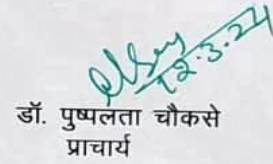 12.3.24
डॉ. पुष्पलता चौकसे
प्राचार्य